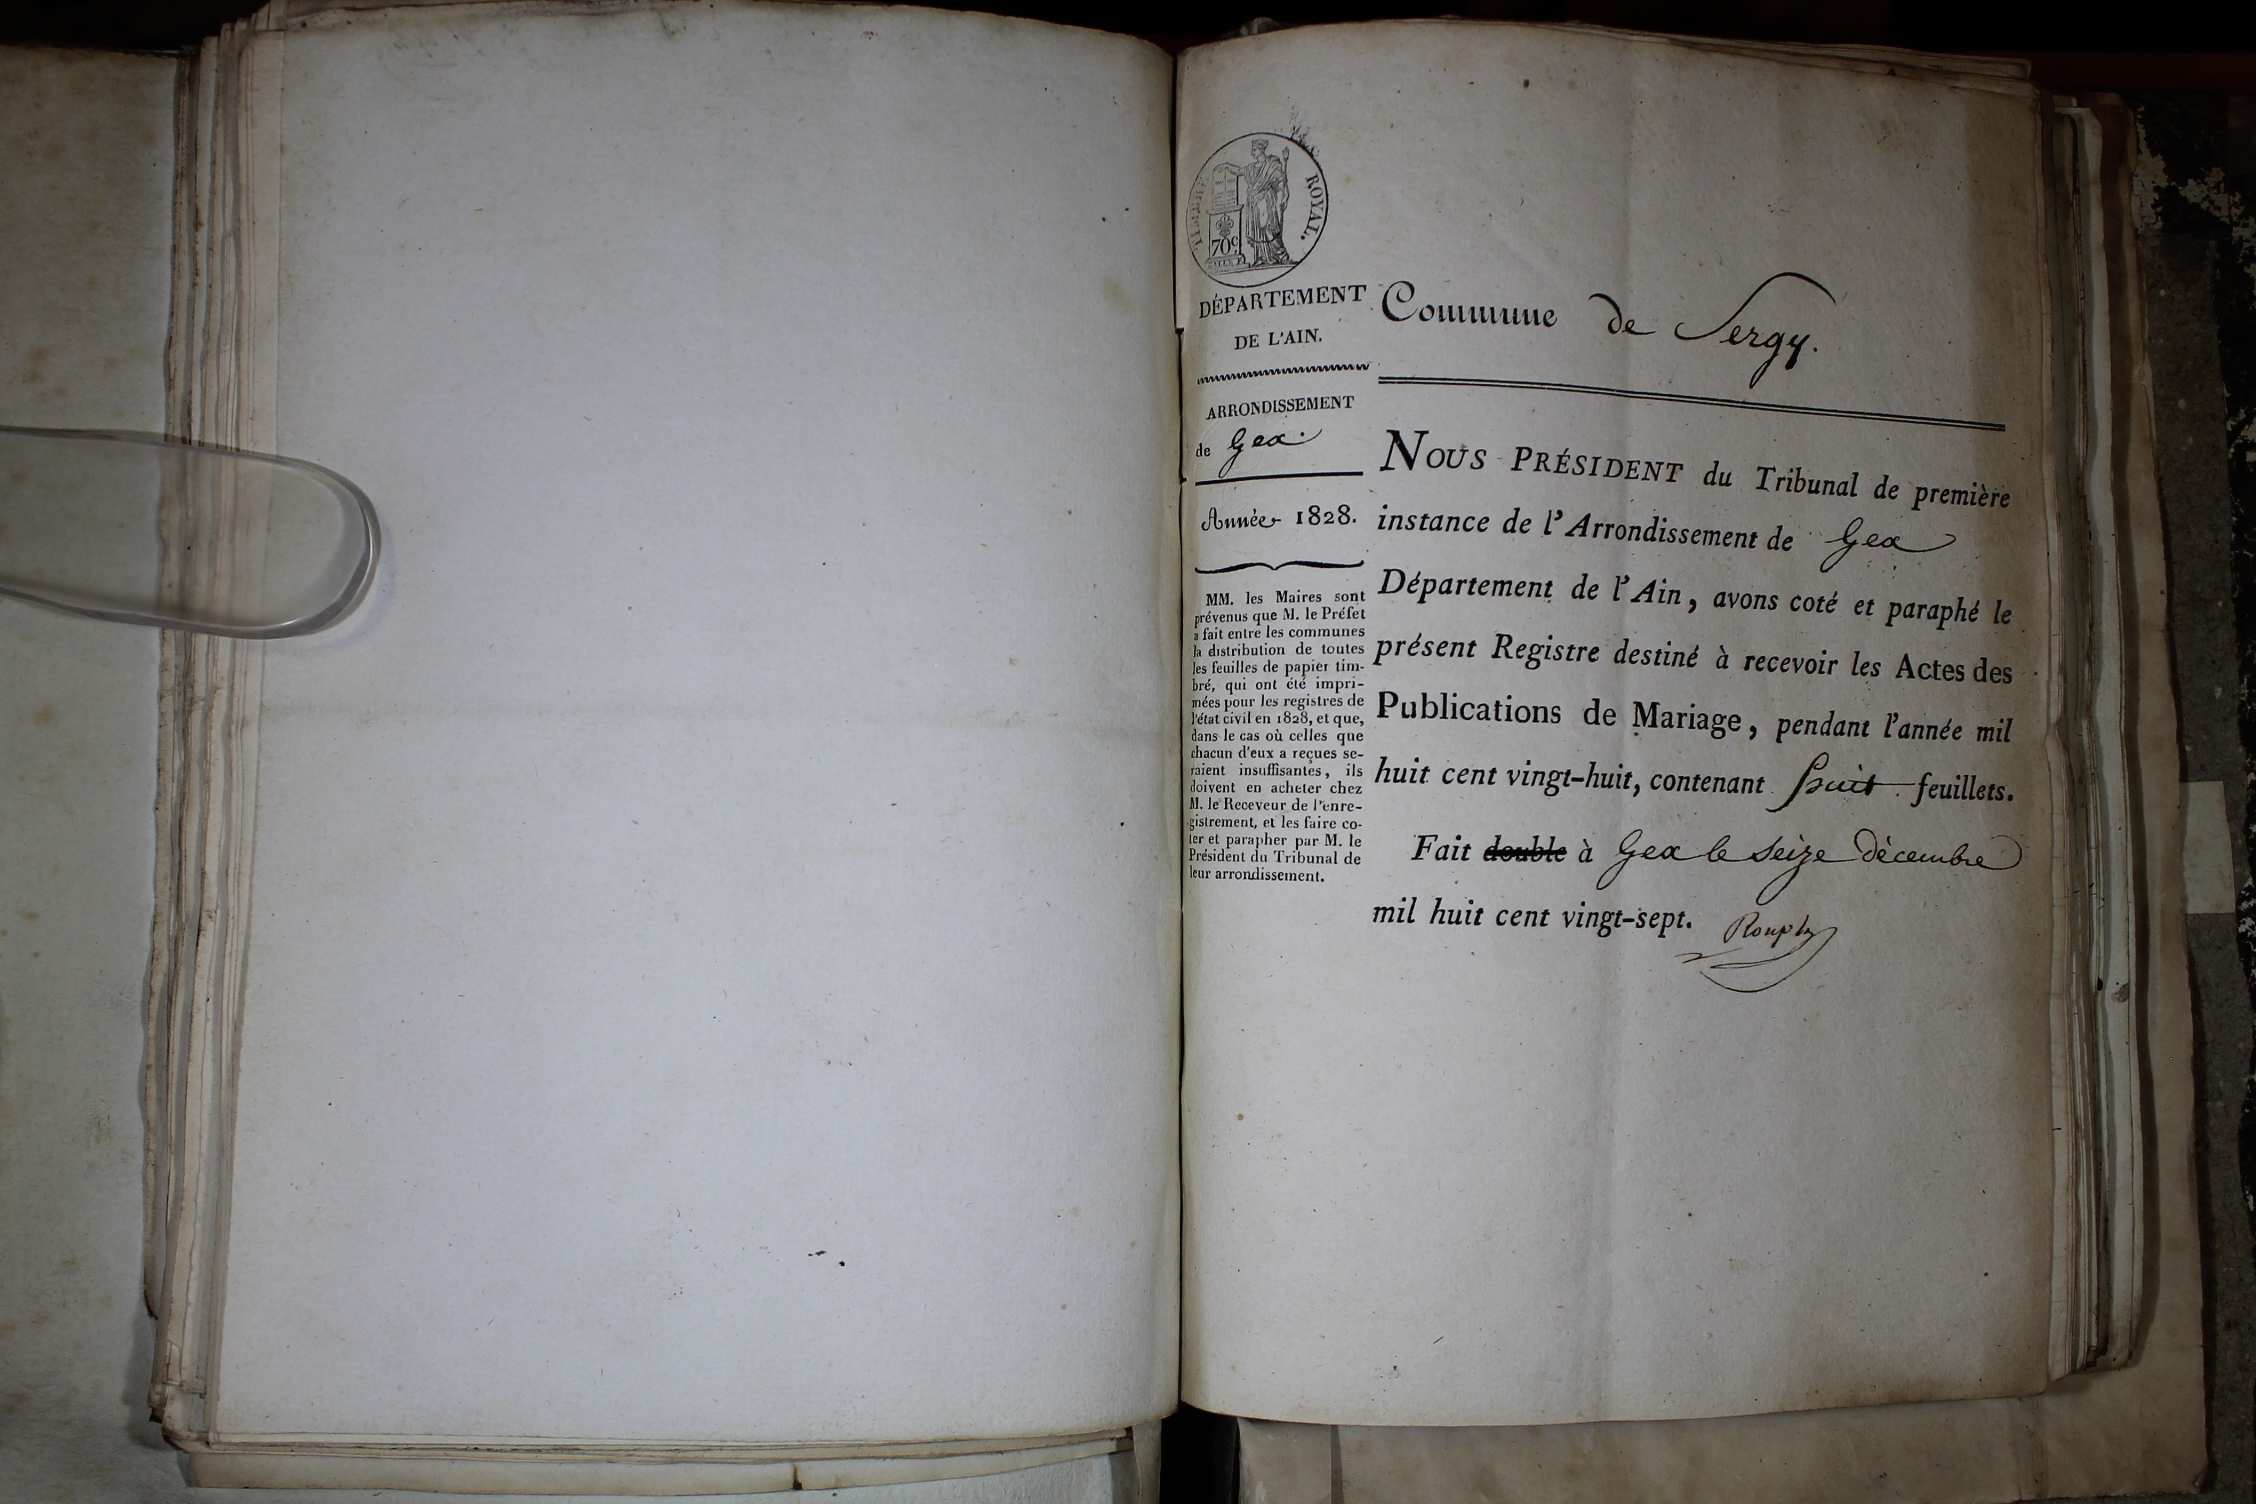 TIMBRE ROYAL.
70c.
DÉPARTEMENT
DE L'AIN.
ARRONDISSEMENT
de Gex.
Année 1828.
MM. les Maires sont
prévenus que M. le Préfet
a fait entre les communes
la distribution de toutes
les feuilles de papier tim-
bré, qui ont été impri-
mées pour les registres de
l'état civil en 1828, et que,
dans le cas où celles que
chacun d'eux a reçues se-
raient insuffisantes, ils
doivent en acheter chez
M. le Receveur de l'enre-
gistrement, et les faire co-
ter et parapher par M. le
Président du Tribunal de
leur arrondissement.
Commune de Sergy.
NOUS PRÉSIDENT du Tribunal de première
instance de l'Arrondissement de Gex
Département de l'Ain, avons coté et paraphé le
présent Registre destiné à recevoir les Actes des
Publications de Mariage, pendant l'année mil
huit cent vingt-huit, contenant huit feuillets.
Fait double à Gex le seize décembre
mil huit cent vingt-sept.